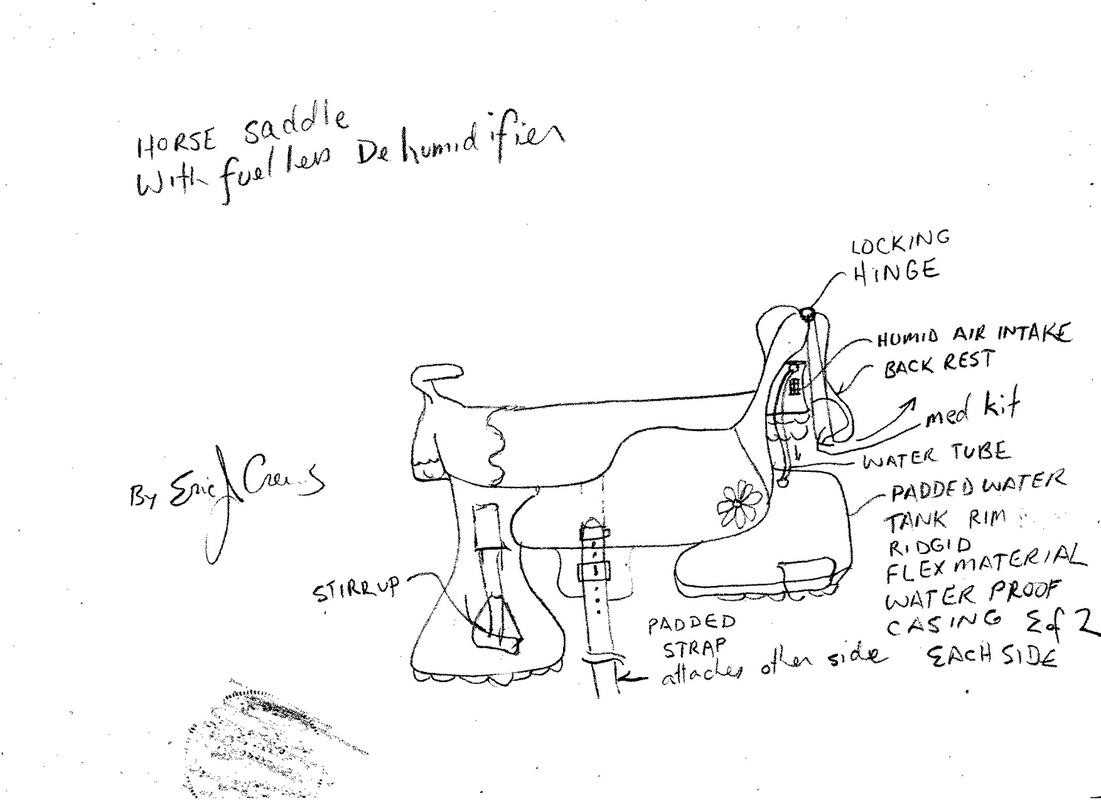 HORSE saddle
With fuelless Dehumidifier
LOCKING
HINGE
HUMID AIR INTAKE
BACK REST
med kit
WATER TUBE
By Eric J Crews
PADDED WATER
TANK RIM
RIDGID
FLEX MATERIAL
WATER PROOF
CASING
EACH SIDE
STIRRUP
PADDED
STRAP
attaches other side